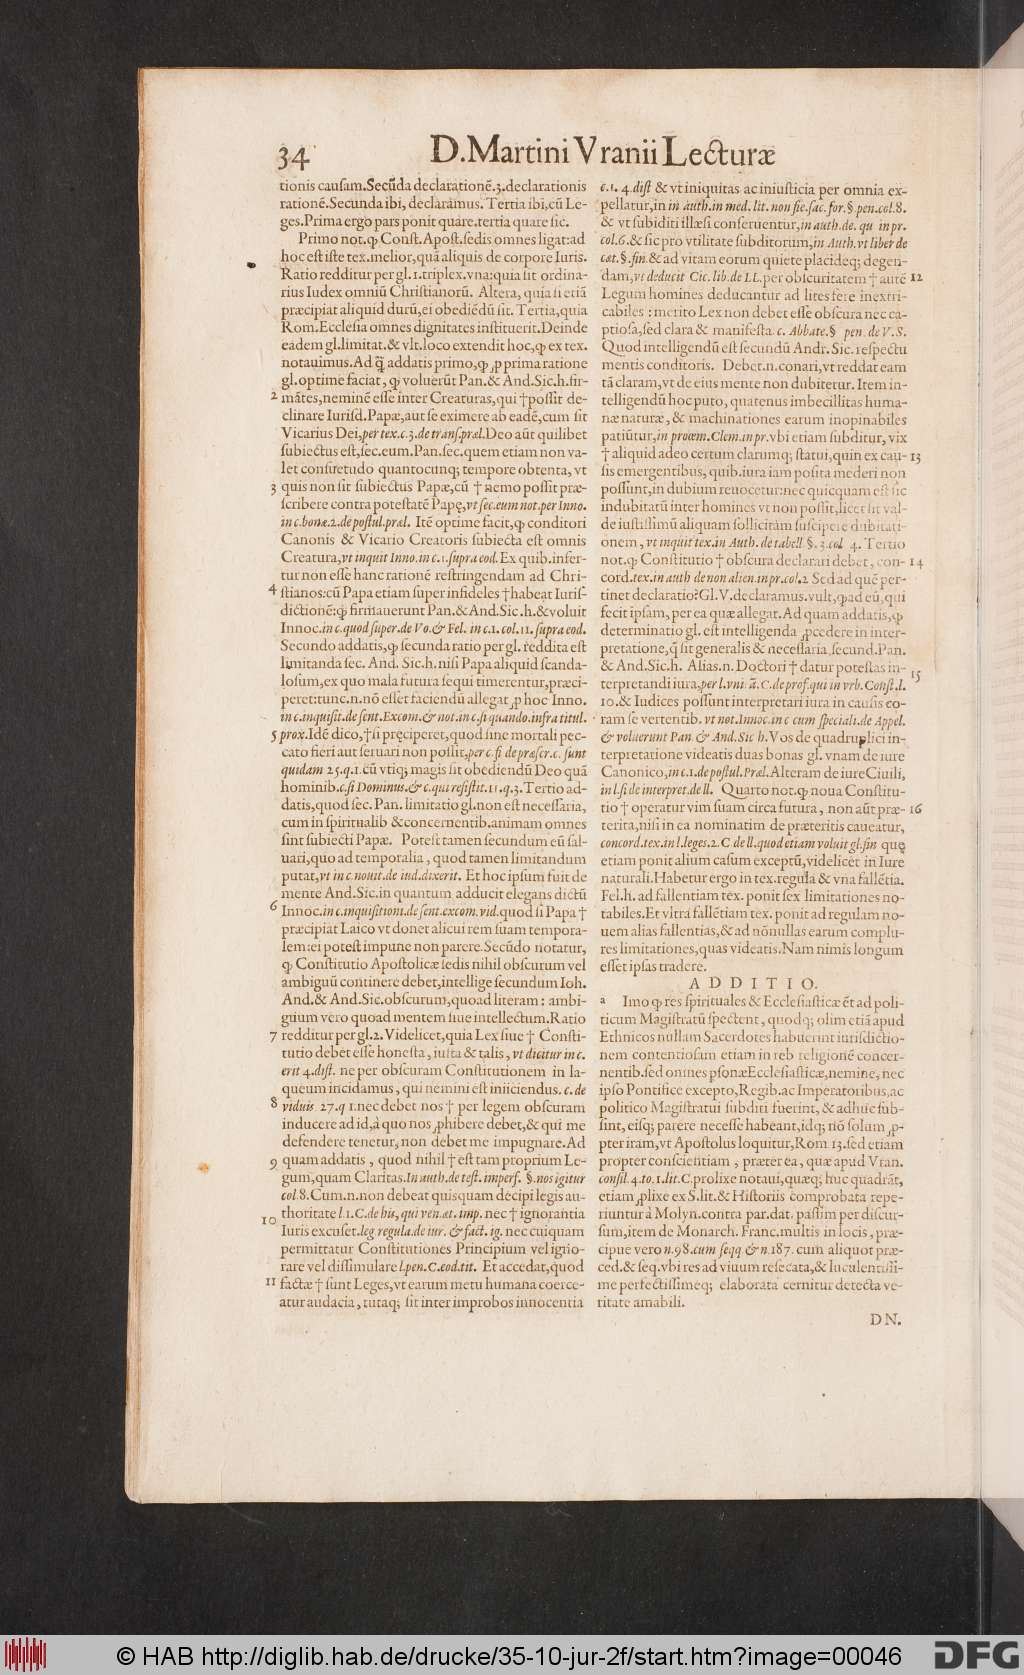 34 D. Martini Vranii Lecturæ
tionis causam. Secūda declarationē. 3. declarationis
rationē. Secunda ibi, declaramus. Tertia ibi, cū Le-
ges. Prima ergo pars ponit quare. tertia quare sic.
Primo not. ꝙ Const. Apost. sedis omnes ligat: ad
hoc est iste tex. melior, quā aliquis de corpore Iuris.
Ratio redditur per gl. 1. triplex. vna: quia sit ordina-
rius Iudex omniū Christianorū. Altera, quia si etiā
præcipiat aliquid durū, ei obediēdū sit. Tertia, quia
Rom. Ecclesia omnes dignitates instituerit. Deinde
eadem gl. limitat. & vlt. loco extendit hoc, ꝙ ex tex.
notauimus. Ad q̃ addatis primo, ꝙ ꝓ prima ratione
gl. optime faciat, ꝙ voluerūt Pan. & And. Sic. h. fir-
2 mātes, neminē esse inter Creaturas, qui † possit de-
clinare Iurisd. Papæ, aut se eximere ab eadē, cum sit
Vicarius Dei, per tex. c. 3. de transl. præl. Deo aūt quilibet
subiectus est, sec. eum. Pan. sec. quem etiam non va-
let consuetudo quantocunq; tempore obtenta, vt
3 quis non sit subiectus Papæ, cū † nemo possit præ-
scribere contra potestatē Papę, vt sec. eum not. per Inno.
in c. bonæ. 2. de postul. præl. Itē optime facit, ꝙ conditori
Canonis & Vicario Creatoris subiecta est omnis
Creatura, vt inquit Inno. in c. 1. supra eod. Ex quib. infer-
tur non esse hanc rationē restringendam ad Chri-
4 stianos: cū Papa etiam super infideles † habeat Iuris-
dictionē: ꝙ firmauerunt Pan. & And. Sic. h. & voluit
Innoc. in c. quod super. de Vo. & Fel. in c. 1. col. 11. supra eod.
Secundo addatis, ꝙ secunda ratio per gl. reddita est
limitanda sec. And. Sic. h. nisi Papa aliquid scanda-
losum, ex quo mala futura sequi timerentur, præci-
peret: tunc. n. nō esset faciendū allegat ꝓ hoc Inno.
in c. inquisit. de sent. Excom. & not. in c. si quando. infra titul.
5 prox. Idē dico, † si pręciperet, quod sine mortali pec-
cato fieri aut seruari non possit, per c. si de præscr. c. sunt
quidam 25. q. 1. cū vtiq; magis sit obediendū Deo quā
hominib. c. si Dominus. & c. qui resistit. 11. q. 3. Tertio ad-
datis, quod sec. Pan. limitatio gl. non est necessaria,
cum in spiritualib & concernentib. animam omnes
sint subiecti Papæ. Potest tamen secundum eū sal-
uari, quo ad temporalia, quod tamen limitandum
putat, vt in c. nouit. de iud. dixerit. Et hoc ipsum fuit de
mente And. Sic. in quantum adducit elegans dictū
6 Innoc. in c. inquisitioni. de sent. excom. vid. quod si Papa †
præcipiat Laico vt donet alicui rem suam tempora-
lem: ei potest impune non parere. Secūdo notatur,
ꝙ Constitutio Apostolicæ sedis nihil obscurum vel
ambiguū continere debet, intellige secundum Ioh.
And. & And. Sic. obscurum, quoad literam: ambi-
guum vero quoad mentem siue intellectum. Ratio
7 redditur per gl. 2. Videlicet, quia Lex siue † Consti-
tutio debet esse honesta, iusta & talis, vt dicitur in c.
erit 4. dist. ne per obscuram Constitutionem in la-
queum incidamus, qui nemini est iniiciendus. c. de
8 viduis 27. q 1. nec debet nos † per legem obscuram
inducere ad id, à quo nos ꝓhibere debet, & qui me
defendere tenetur, non debet me impugnare. Ad
9 quam addatis, quod nihil † est tam proprium Le-
gum, quam Claritas. In auth. de test. imperf. §. nos igitur
col. 8. Cum. n. non debeat quisquam decipi legis au-
thoritate l. 1. C. de his, qui ven. æt. imp. nec † ignorantia
10 Iuris excuset. leg regula. de iur. & fact. ig. nec cuiquam
permittatur Constitutiones Principium vel igno-
rare vel dissimulare l. pen. C. eod. tit. Et accedat, quod
11 factæ † sunt Leges, vt earum metu humana coerce-
atur audacia, tutaq; sit inter improbos innocentia
c. 1. 4. dist & vt iniquitas ac iniusticia per omnia ex-
pellatur, in in auth. in med. lit. non fie. sac. for. § pen. col. 8.
& vt subiditi illæsi conseruentur, in auth. de. qu in pr.
col. 6. & sic pro vtilitate subditorum, in Auth. vt liber de
cæt. §. fin. & ad vitam eorum quiete placideq; degen-
dam, vt deducit Cic. lib. de LL. per obscuritatem † autē 12
Legum homines deducantur ad lites fere inextri-
cabiles: merito Lex non debet esse obscura nec ca-
ptiosa, sed clara & manifesta. c. Abbate. § pen. de V. S.
Quod intelligendū est secundū Andr. Sic. respectu
mentis conditoris. Debet. n. conari, vt reddat eam
tā claram, vt de eius mente non dubitetur. Item in-
telligendū hoc puto, quatenus imbecillitas huma-
næ naturæ, & machinationes earum inopinabiles
patiūtur, in prooem. Clem. in pr. vbi etiam subditur, vix
† aliquid adeo certum clarumq; statui, quin ex cau- 13
sis emergentibus, quib. iura iam posita mederi non
possunt, in dubium reuocetur: nec quicquam est sic
indubitatū inter homines vt non possit, licet sit val-
de iustissimū aliquam sollicitam suscipere dubitati-
onem, vt inquit tex. in Auth. de tabell. §. 3. col 4. Tertio
not. ꝙ Constitutio † obscura declarari debet, con- 14
cord. tex. in auth de non alien. in pr. col. 2 Sed ad quē per-
tinet declaratio? Gl. V. declaramus. vult, ꝙ ad eū, qui
fecit ipsam, per ea quæ allegat. Ad quam addatis, ꝙ
determinatio gl. est intelligenda ꝓcedere in inter-
pretatione, q̃ sit generalis & necessaria, secund. Pan.
& And. Sic. h. Alias. n. Doctori † datur potestas in-
terpretandi iura, per l. vni. ā. C. de prof. qui in vrb. Const. l. 15
10. & Iudices possunt interpretari iura in causis co-
ram se vertentib. vt not. Innoc. in c cum speciali. de Appel.
& voluerunt Pan. & And. Sic h. Vos de quadruplici in-
terpretatione videatis duas bonas gl. vnam de iure
Canonico, in c. 1. de postul. Præl. Alteram de iure Ciuili,
in l. si de interpret. de ll. Quarto not. ꝙ noua Constitu-
tio † operatur vim suam circa futura, non aūt præ- 16
terita, nisi in ea nominatim de præteritis caueatur,
concord. tex. in l. leges. 2. C de ll. quod etiam voluit gl. fin quę
etiam ponit alium casum exceptū, videlicet in Iure
naturali. Habetur ergo in tex. regula & vna fallētia.
Fel. h. ad fallentiam tex. ponit sex limitationes no-
tabiles. Et vltra fallētiam tex. ponit ad regulam no-
uem alias fallentias, & ad nōnullas earum complu-
res limitationes, quas videatis. Nam nimis longum
esset ipsas tradere.
ADDITIO.
a Imo ꝙ res spirituales & Ecclesiasticæ ēt ad poli-
ticum Magistratū spectent, quodq; olim etiā apud
Ethnicos nullam Sacerdotes habuerint iurisdictio-
nem contentiosam etiam in reb religionē concer-
nentib. sed omnes psonæ Ecclesiasticæ, nemine, nec
ipso Pontifice excepto, Regib. ac Imperatoribus, ac
politico Magistratui subditi fuerint, & adhuc sub-
sint, eisq; parere necesse habeant, idq; nō solum ꝓ-
pter iram, vt Apostolus loquitur, Rom 13. sed etiam
propter conscientiam, præterea, quæ apud Vran.
consil. 4. to. 1. lit. C. prolixe notaui, quæq; huc quadrāt,
etiam ꝓlixe ex S. lit. & Historiis comprobata repe-
riuntur à Molyn. contra par. dat. passim per discur-
sum, item de Monarch. Franc. multis in locis, præ-
cipue vero n. 98. cum seqq & n 187. cum aliquot præ-
ced. & seq. vbi res ad viuum resecata, & luculentissi-
me perfectissimeq; elaborata cernitur detecta ve-
ritate amabili.
DN.
© HAB http://diglib.hab.de/drucke/35-10-jur-2f/start.htm?image=00046
DFG